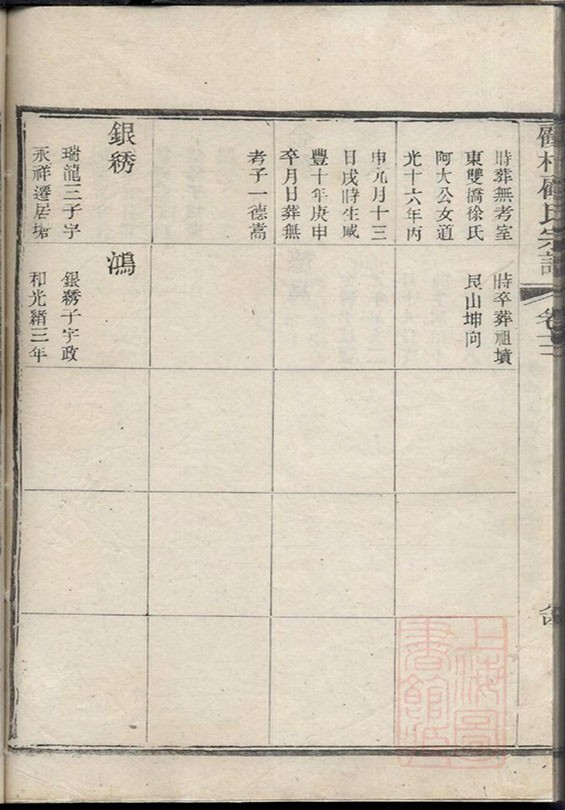 村顧氏宗譜
卷三
時葬無考室
東雙橋徐氏
阿大公女道
光十六年丙
申九月十三
日戌時生咸
豐十年庚申
卒月日葬無
考子一德嵩
銀綉
瑞龍三子字
永祥遷居塘
時卒葬祖墳
艮山坤向
鴻
銀綉子字政
和光緒三年
上海圖書館藏